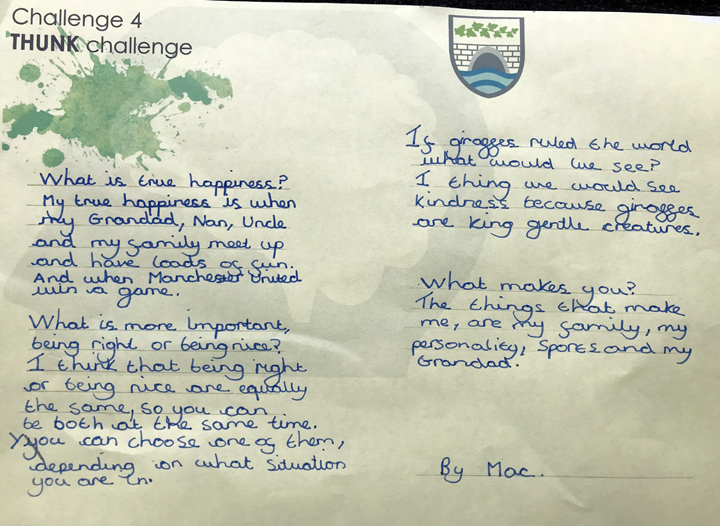 Challenge 4
THUNK challenge
What is true happiness?
My true happiness is when
my Grandad, Nan, Uncle
and my family meet up
and have loads of fun.
And when Manchester United
win a game.
What is more important,
being right or being nice?
I think that being right
or being nice are equally
the same, so you can
be both at the same time.
Yyou can choose one of them,
depending on what situation
you are in.
If giraffes ruled the world
what would we see?
I thing we would see
kindness because giraffes
are king gentle creatures.
What makes you?
The things that make
me, are my family, my
personality, sports and my
Grandad.
By Mac.